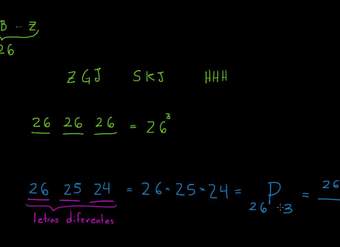 B - Z
26
ZGJ SKJ HHH
26 26 26 = 26³
26 25 24 = 26·25·24 = P 26 3 = 26
letras diferentes